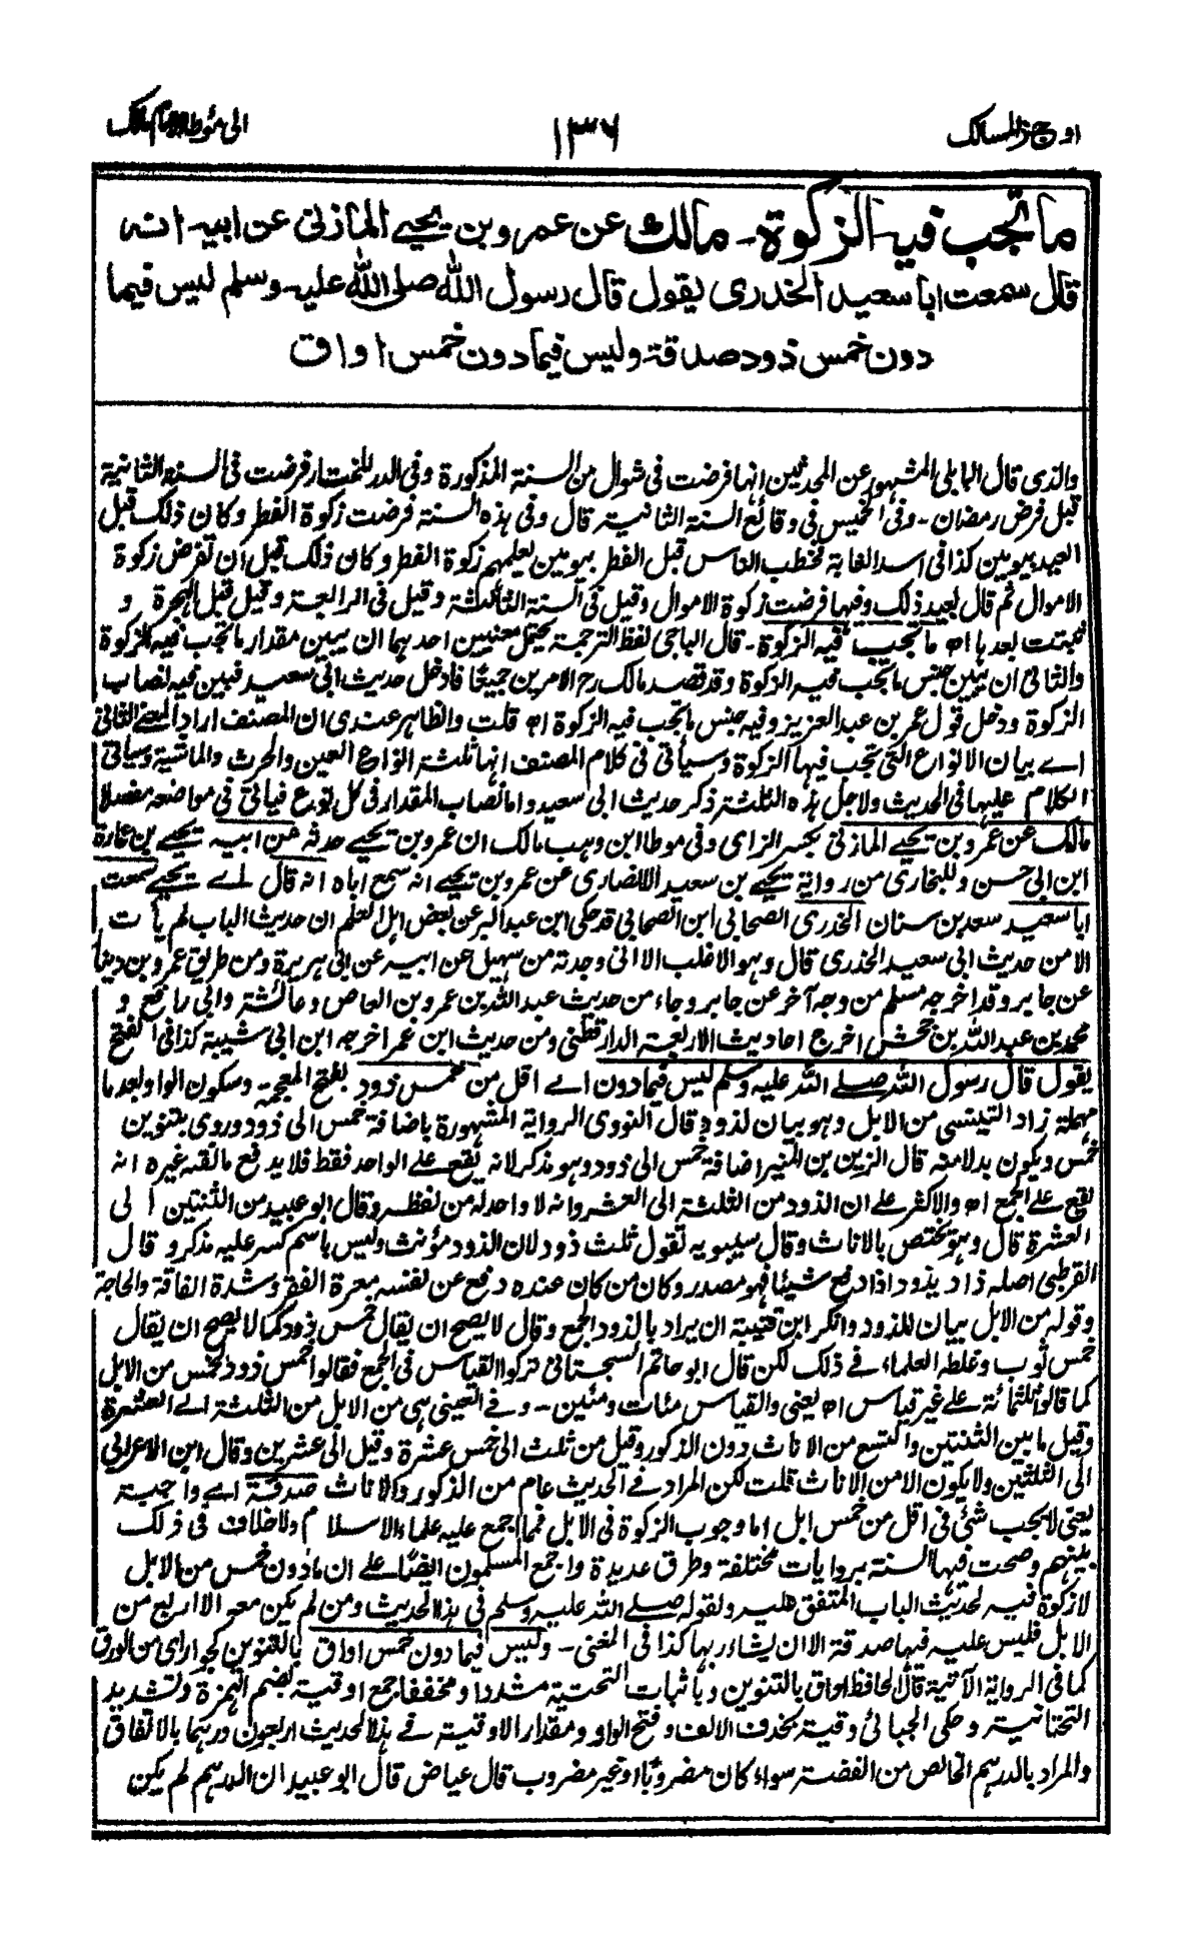 اوجز المسالك
١٣٦
الى مؤطا الامام مالك
ما تجب فيه الزكوة۔ مالك عن عمرو بن يحيے المازنى عن ابيه انه
قال سمعت ابا سعيد الخدرى يقول قال رسول الله صلى الله عليه وسلم ليس فيما
دون خمس ذود صدقة وليس فيما دون خمس اواق
والذى قال البابلى المشهور عن المحدثين انها فرضت فى شوال من السنة المذكورة وفى الدر المختار فرضت فى السنة الثانية
قبل فرض رمضان ۔ وفى الخميس فى وقائع السنة الثانية قال وفى هذه السنة فرضت زكوة الفطر وكان ذلك قبل
العيد بيومين كذا فى اسد الغابة فخطب الناس قبل الفطر بيومين يعلمهم زكوة الفطر وكان ذلك قبل ان تفرض زكوة
الاموال ثم قال بعيد ذلك وفيها فرضت زكوة الاموال وقيل فى السنة الثالثة وقيل فى الرابعة وقيل قبل الهجرة و
ثبتت بعدها اھ ما تجب فيه الزكوة۔ قال الباجى لفظ الترجمة يحتمل معنيين احدهما ان يبين مقدار ما تجب فيه الزكوة
والثانى ان يبين جنس ما تجب فيه الزكوة وقد قصد مالك رح الامرين جميعًا فادخل حديث ابى سعيد فبين فيه نصاب
الزكوة ودخل قول عمر بن عبد العزيز وفيه جنس ما تجب فيه الزكوة اھ قلت والظاهر عندى ان المصنف اراد المعنے الثانى
اے بيان الانواع التى تجب فيها الزكوة وسيأتى فى كلام المصنف انها ثلثة انواع العين والحرث والماشية وسياتى
الكلام عليها فى الحديث ولاجل هذه الثلثة ذكر حديث ابى سعيد واما نصاب المقدار فى كل نوع فياتى فى مواضعه مفصلا
مالك عن عمرو بن يحيے المازنى بكسر الزاى وفى موطا ابن وهب مالك ان عمرو بن يحيے حدثه عن ابيه يحيے بن عمارة
ابن ابى حسن وللبخارى من رواية يحيے بن سعيد الانصارى عن عمرو بن يحيے انه سمع اباه انه قال اے يحيے سمعت
ابا سعيد سعد بن سنان الخدرى الصحابى ابن الصحابى قد حكى ابن عبد البر عن بعض اهل العلم ان حديث الباب لم يأت
الا من حديث ابى سعيد الخدرى قال وهو الاغلب الا انى وجدته من سهيل عن ابيه عن ابى هريرة ومن طريق عمرو بن دينار
عن جابر وقد اخرجه مسلم من وجه آخر عن جابر وجاء من حديث عبد الله بن عمرو بن العاص وعائشة وابى رافع و
محمد بن عبد الله بن جحش اخرج احاديث الاربعة الدارقطنى ومن حديث ابن عمر اخرجه ابن ابى شيبة كذا فى الفتح
يقول قال رسول الله صلے الله عليه وسلم ليس فيما دون اے اقل من خمس ذود بفتح المعجمة وسكون الواو بعدها
مهملة زاد التنيسى من الابل وهو بيان لذود قال النووى الرواية المشهورة باضافة خمس الى ذود وروى بتنوين
خمس ويكون بدلا منه قال الزين بن المنير اضافة خمس الى ذود وهو مذكر لانه يقع على الواحد فقط فلا يدفع ما نقله غيره انه
يقع على الجمع اھ والاكثر على ان الذود من الثلثة الى العشر وانه لا واحد له من لفظه وقال ابو عبيد من الثنتين الى
العشرة قال وهو يختص بالاناث وقال سيبويه تقول ثلث ذود لان الذود مؤنث وليس باسم كسر عليه مذكر وقال
القرطبى اصله ذاد يذود اذا دفع شيئًا فهو مصدر وكان من كان عنده دفع عن نفسه معرة الفقر وشدة الفاقة والحاجة
وقوله من الابل بيان للذود وانكر ابن قتيبة ان يراد بالذود الجمع وقال لا يصح ان يقال خمس ذود كما لا يصح ان يقال
خمس ثوب وغلطه العلماء فے ذلك لكن قال ابو حاتم السجستانى تركوا القياس فى الجمع فقالوا خمس ذود لخمس من الابل
كما قالوا ثلثمائة على غير قياس اھ يعنى والقياس مئات ومئين ۔ وفے العينى هى من الابل من الثلثة الے العشرة
وقيل ما بين الثنتين والتسع من الاناث دون الذكور وقيل من ثلث الى خمس عشرة وقيل الى عشرين وقال ابن الاعرابى
الى الثلثين ولا يكون الا من الاناث قلت لكن المراد فے الحديث عام من الذكور والاناث صدقة اے واجبة
يعنى لا يجب شئ فى اقل من خمس ابل اما وجوب الزكوة فى الابل فمما اجمع عليه علماء الاسلام ولا خلاف فى ذلك
بينهم وصحت فيها السنة بروايات مختلفة وطرق عديدة واجمع المسلمون ايضًا على ان ما دون خمس من الابل
لا زكوة فيه لحديث الباب المتفق عليه ولقوله صلے الله عليه وسلم فى هذا الحديث ومن لم يكن معه الا اربع من
الابل فليس عليه فيها صدقة الا ان يشاء ربها كذا فى المغنى ۔ وليس فيما دون خمس اواق بالتنوين كجوار اى من الورق
كما فى الرواية الآتية قال الحافظ اواق بالتنوين وباثبات التحتية مشددا ومخففا جمع اوقية بضم الهمزة وتشديد
التحتانية وحكى الجبائى وقية بحذف الالف وفتح الواو ومقدار الاوقية فے هذا الحديث اربعون درهما بالاتفاق
والمراد بالدرهم الخالص من الفضة سواء كان مضروبًا او غير مضروب قال عياض قال ابو عبيد ان الدرهم لم يكن